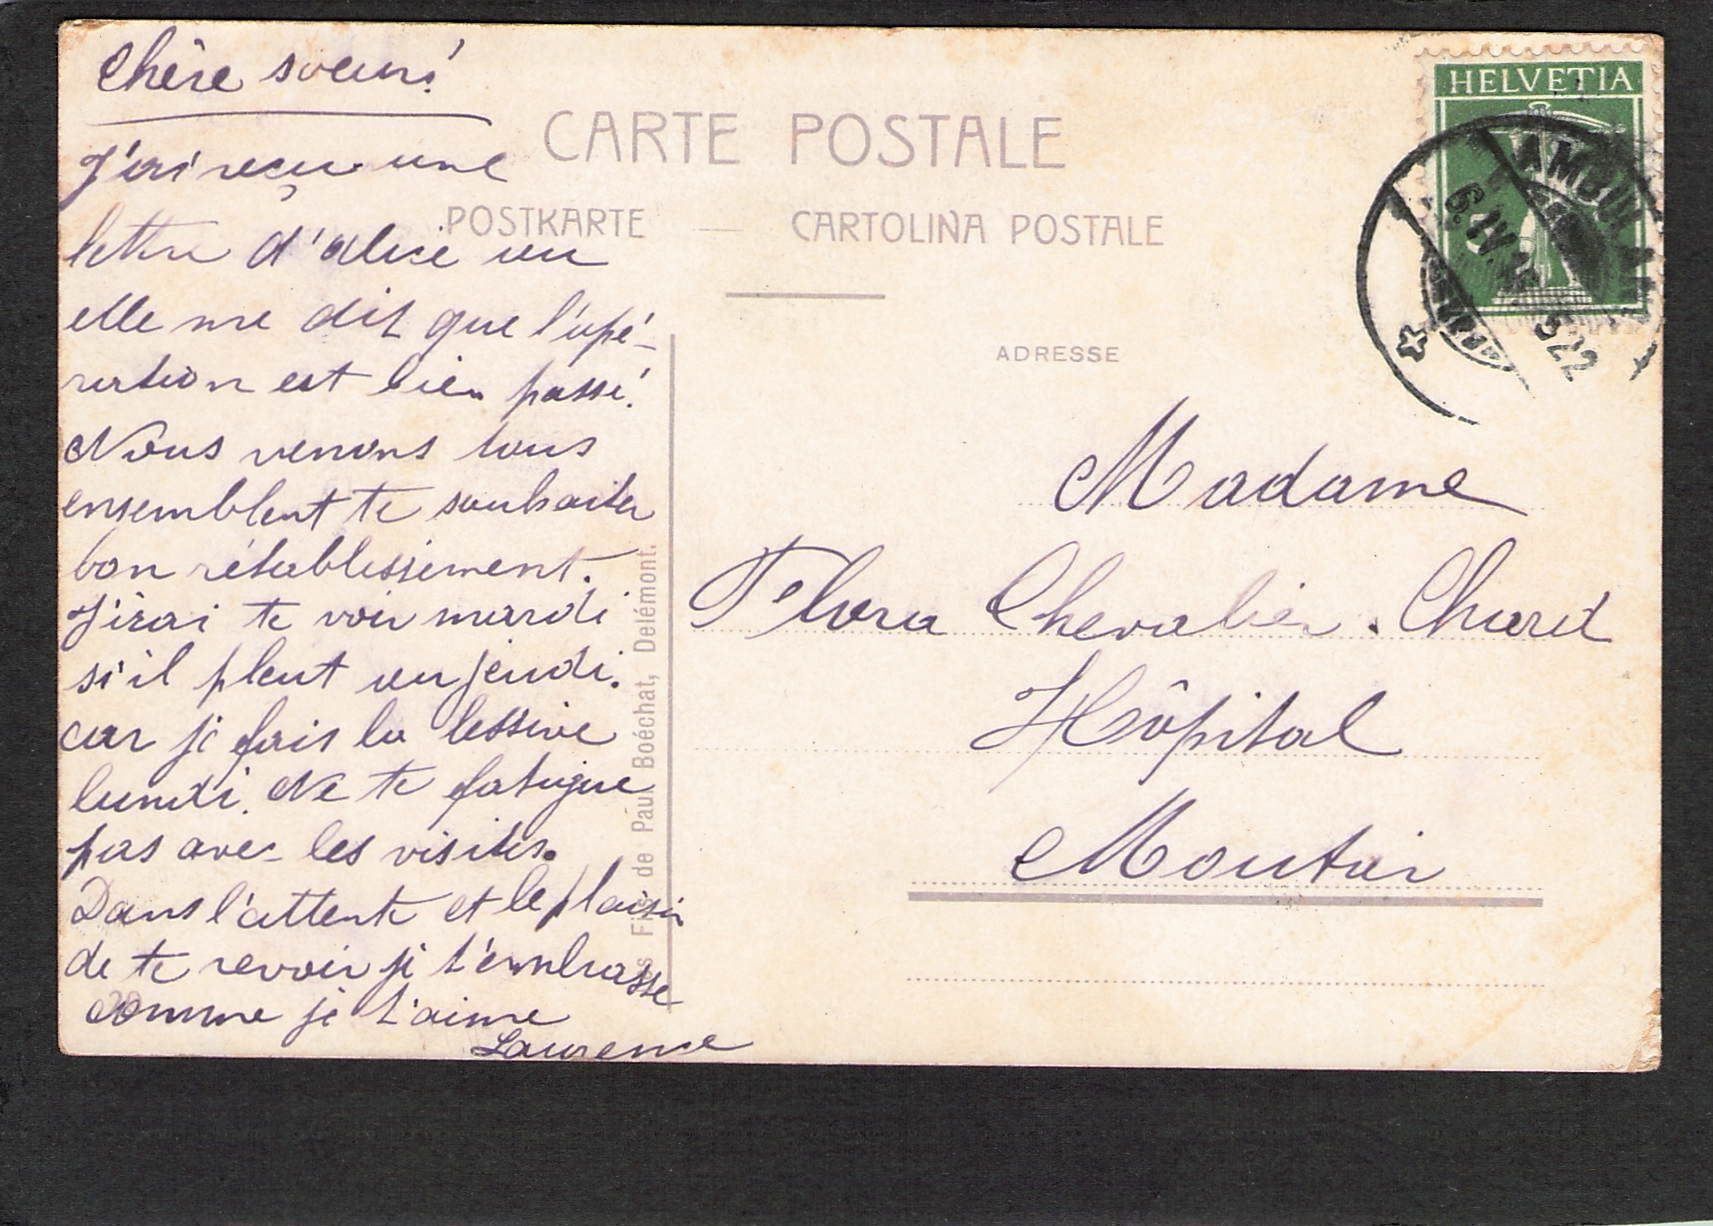 Chère soeur!
J'ai reçu une
lettre d'alice ou
elle me dit que l'opé-
ration est bien passé!
Nous venons tous
ensemblent te souhaiter
bon rétablissement.
J'irai te voir mardi
s'il pleut ou jeudi.
car je fais la lessive
lundi. Ne te fatigue
pas avec les visites.
Dans l'attente et le plaisir
de te revoir je t'embrasse
comme je t'aime
Laurence
CARTE POSTALE
POSTKARTE — CARTOLINA POSTALE
ADRESSE
Madame
Flora Chevalier. Chard
Hôpital
Moutier
Fils de Paul Boéchat, Delémont.
HELVETIA
AMBULANT
6.IV.
522